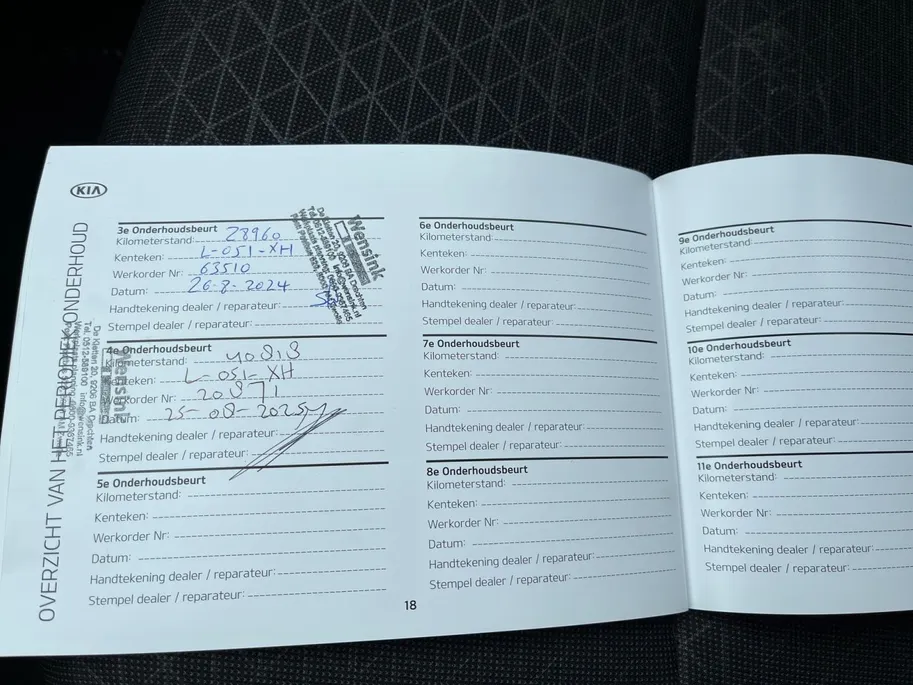 KIA
OVERZICHT VAN HET PERIODIEK ONDERHOUD
3e Onderhoudsbeurt
Kilometerstand: 28960
Kenteken: L-051-XH
Werkorder Nr: 63510
Datum: 26-8-2024
Handtekening dealer / reparateur:
Stempel dealer / reparateur:
Wensink
De Kletten 20, 9206 BA Drachten
4e Onderhoudsbeurt
Kilometerstand:
Kenteken: L-051-XH
Werkorder Nr: 20871
Datum: 25-08-2025
Handtekening dealer / reparateur:
Stempel dealer / reparateur:
Wensink
De Kletten 20, 9206 BA Drachten
5e Onderhoudsbeurt
Kilometerstand:
Kenteken:
Werkorder Nr:
Datum:
Handtekening dealer / reparateur:
Stempel dealer / reparateur:
6e Onderhoudsbeurt
Kilometerstand:
Kenteken:
Werkorder Nr:
Datum:
Handtekening dealer / reparateur:
Stempel dealer / reparateur:
7e Onderhoudsbeurt
Kilometerstand:
Kenteken:
Werkorder Nr:
Datum:
Handtekening dealer / reparateur:
Stempel dealer / reparateur:
8e Onderhoudsbeurt
Kilometerstand:
Kenteken:
Werkorder Nr:
Datum:
Handtekening dealer / reparateur:
Stempel dealer / reparateur:
18
9e Onderhoudsbeurt
Kilometerstand:
Kenteken:
Werkorder Nr:
Datum:
Handtekening dealer / reparateur:
Stempel dealer / reparateur:
10e Onderhoudsbeurt
Kilometerstand:
Kenteken:
Werkorder Nr:
Datum:
Handtekening dealer / reparateur:
Stempel dealer / reparateur:
11e Onderhoudsbeurt
Kilometerstand:
Kenteken:
Werkorder Nr:
Datum:
Handtekening dealer / reparateur:
Stempel dealer / reparateur: